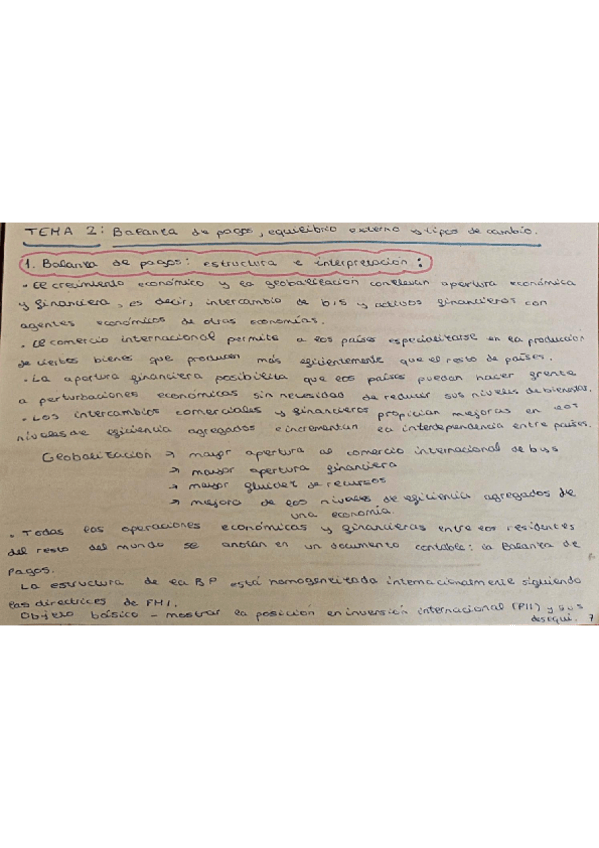 TEMA 2: Balanza de pagos, equilibrio externo y tipos de cambio.
1. Balanza de pagos: estructura e interpretación:
· El crecimiento económico y la globalización conllevan apertura económica
y financiera, es decir, intercambio de b/s y activos financieros con
agentes económicos de otras economías.
· El comercio internacional permite a los países especializarse en la producción
de ciertos bienes que producen más eficientemente que el resto de países.
· La apertura financiera posibilita que los países puedan hacer frente
a perturbaciones económicas sin necesidad de reducir sus niveles de bienestar.
· Los intercambios comerciales y financieros propician mejoras en los
niveles de eficiencia agregados e incrementan la interdependencia entre países.
Globalización → mayor apertura al comercio internacional de bys
→ mayor apertura financiera
→ mayor fluidez de recursos
→ mejora de los niveles de eficiencia agregados de
una economía.
· Todas las operaciones económicas y financieras entre los residentes
del resto del mundo se anotan en un documento contable: la Balanza de
Pagos.
La estructura de la BP está homogeneizada internacionalmente siguiendo
las directrices de FMI.
Objeto básico - mostrar la posición en inversión internacional (PII) y sus
desequi. 7